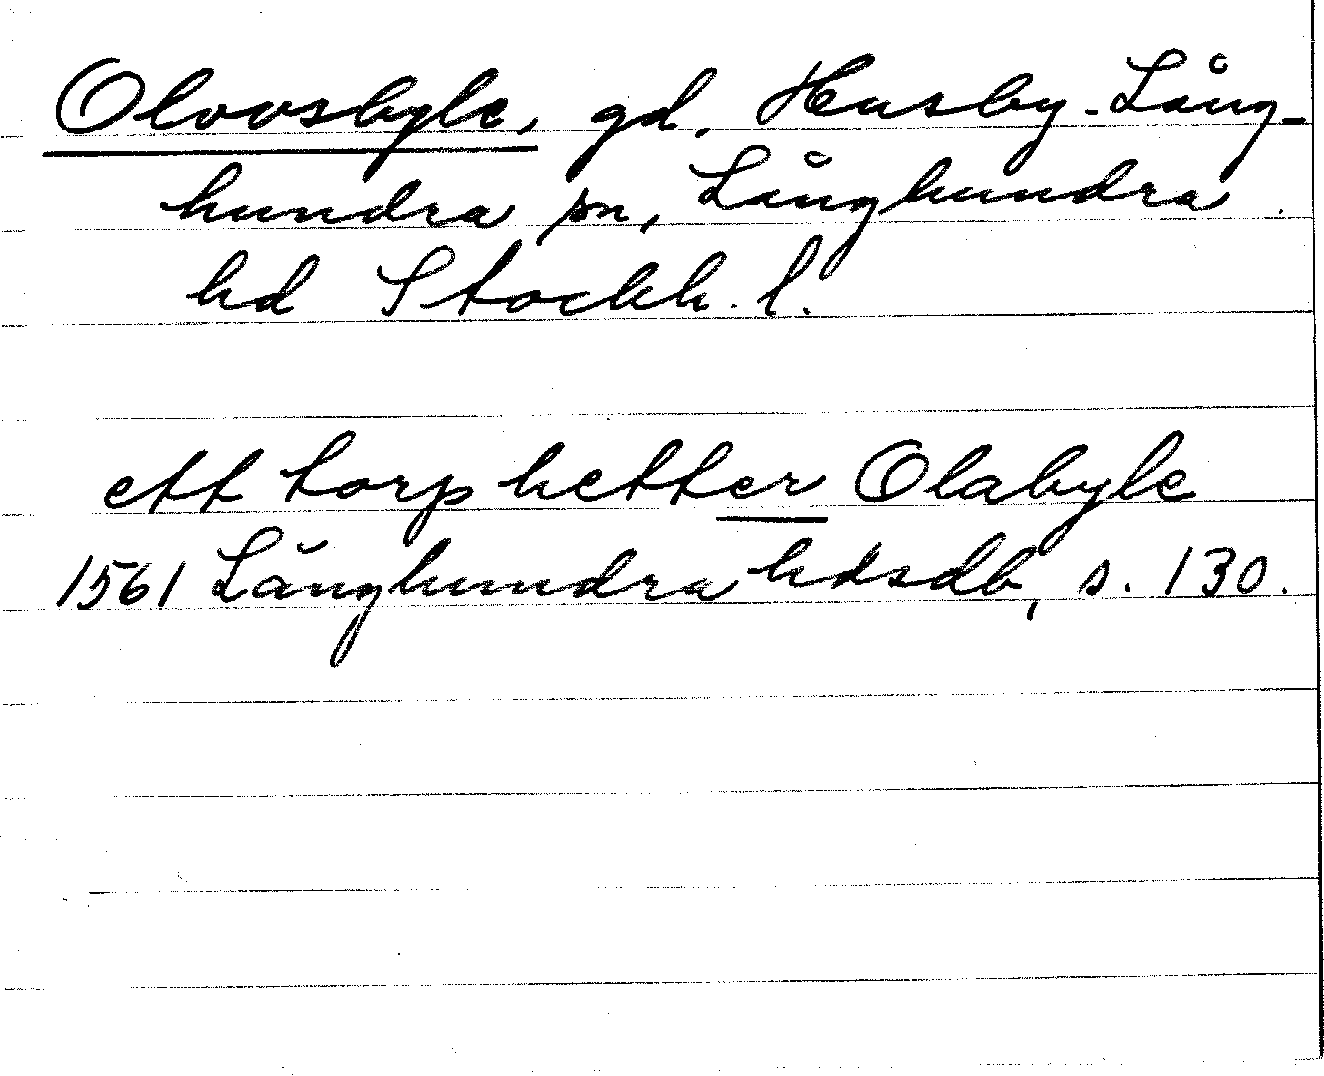 Olovsbyle, gd. Husby-Lång-
hundra sn, Långhundra
hd Stockh. l.
ett torp hetter Olabyle
1561 Långhundra hdsdb, s. 130.